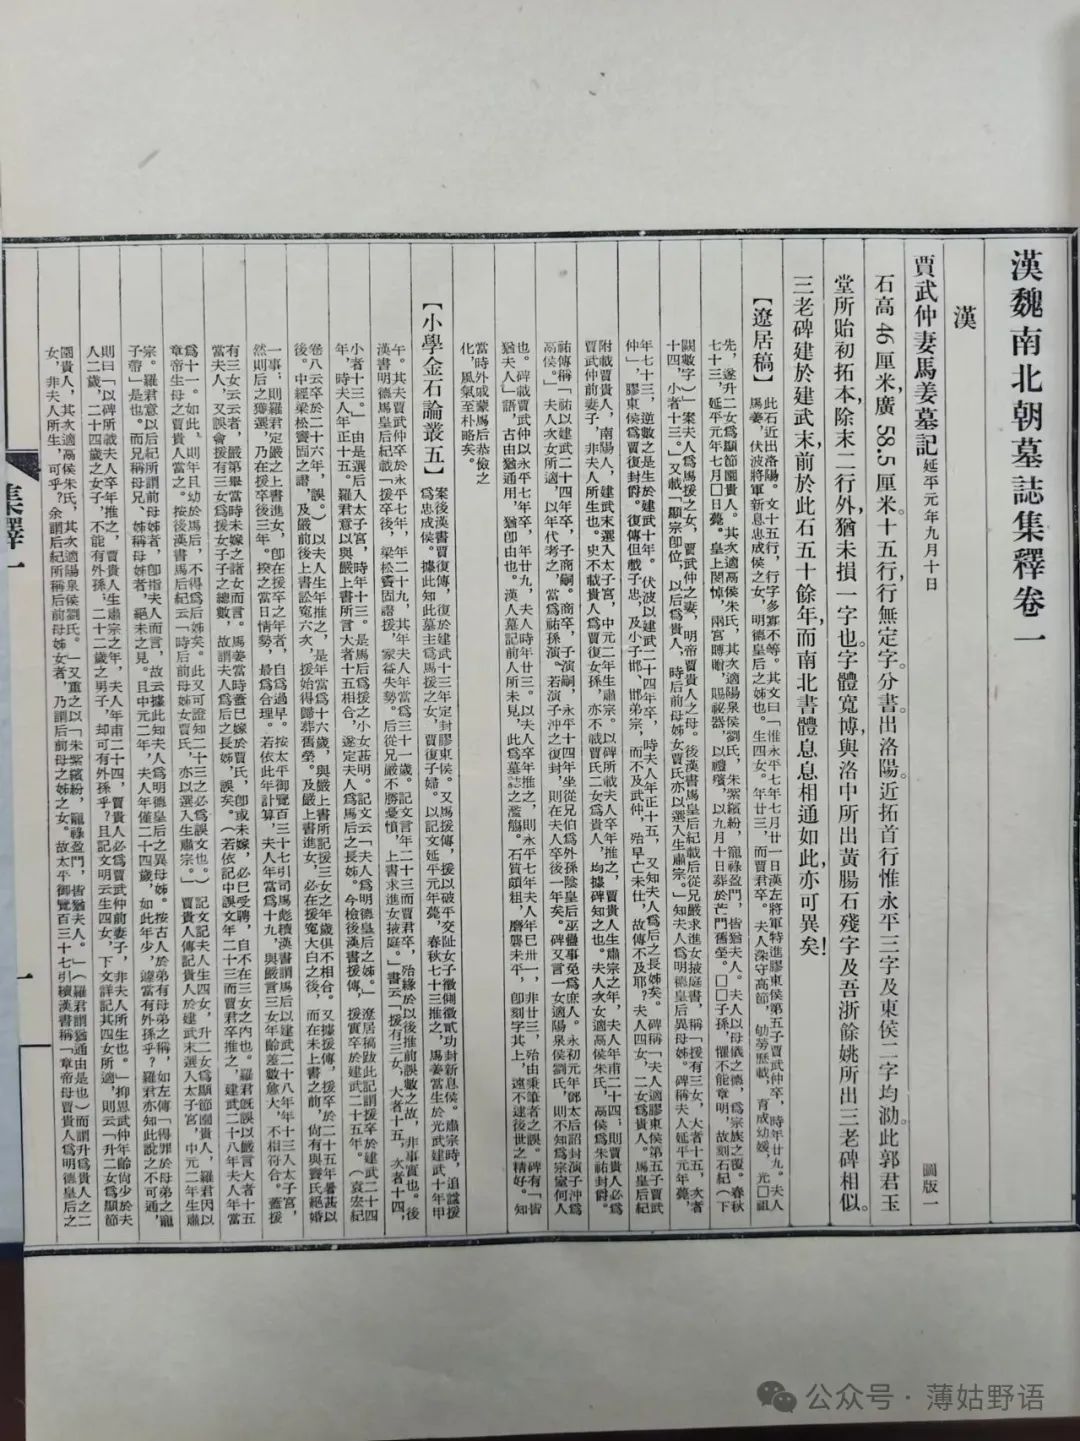 漢魏南北朝墓誌集釋卷一
漢
賈武仲妻馬姜墓記 延平元年九月十日 圖版一
石高46厘米，廣58.5厘米。十五行，行無定字。分書。出洛陽。近拓首行惟永平三字及東侯二字均泐。此郭君玉
堂所貽初拓本，除末二行外，猶未損一字也。字體寬博，與洛中所出黃腸石殘字及吾浙餘姚所出三老碑相似。
三老碑建於建武末，前於此石五十餘年，而南北書體息息相通如此，亦可異矣！
【遼居稿】此石近出洛陽。文十五行，行字多寡不等。其文曰「惟永平七年七月廿一日漢左將軍特進膠東侯第五子賈武仲卒，時年廿九。夫人
馬姜，伏波將軍新息忠成侯之女，明德皇后之姊也。生四女。年廿三，而賈君卒。夫人深守高節，劬勞歷載，育成幼媛，光□祖
先，遂升二女爲顯節園貴人。其次適鬲侯朱氏，其次適陽泉侯劉氏，朱紫繽紛，寵祿盈門，皆猶夫人。夫人以母儀之德，爲宗族之覆。春秋
七十三，延平元年七月□日薨。皇上閔悼，兩宮賻贈，賜祕器，以禮殯，以九月十日葬於芒門舊塋。□□子孫，懼不能章明，故刻石紀（下
闕數字）」案夫人爲馬援之女，賈武仲之妻，明帝賈人之母。後漢書馬皇后紀載后從兄嚴求進女掖庭書，稱「援有三女，大者十五，次者
十四，小者十三。」又載「顯宗卽位，以后爲貴人，時后前母姊女賈氏亦以選入生肅宗。」知夫人爲明德皇后異母姊。碑稱夫人延平元年薨，
年七十三，逆數之是生於建武十年。伏波以建武二十四年卒，時夫人年正十五，又知夫人爲后之長姊矣。碑稱「夫人適膠東侯第五子賈武
仲」，膠東侯爲賈復封爵。復傳但載子忠，及小子邯、邯弟宗，而不及武仲，殆早亡未仕，故傳不及耶？夫人四女，二女爲貴人。馬皇后紀
附載賈貴人，南陽人，建武末選入太子宮，中元二年生肅宗。以碑所載夫人卒年推之，賈貴人生肅宗之年，夫人年甫二十四；則賈貴人必爲
賈武仲前妻子，非夫人所生也。史不載貴人爲賈復女孫，亦不載賈氏二女爲貴人，均據碑知之也。夫人次女適鬲侯朱氏，鬲侯爲朱祐封爵。
祐傳稱「祐以建武二十四年卒，子商嗣。商卒，子演嗣，永平十四年坐從兄伯爲外孫陰皇后巫蠱事免爲庶人。永初元年鄧太后詔封演子沖爲
鬲侯。」夫人次女所適，以年代考之，當爲祐孫演。若演子沖之復封，則在夫人卒後一年矣。碑又言一女適陽泉侯劉氏，則不知爲宗室何人
也。碑載賈武仲以永平七年卒，年廿九，夫人時年廿三。以夫人卒年推之，則永平七年夫人年巳卅一，非廿三，殆由秉筆者之誤。碑有「皆
猶夫人」語，古由猶通用，猶卽由也。漢人墓記前人所未見，此爲墓誌之濫觴。石質頗粗，磨礱未平，卽刻字其上，遠不逮後世之精好。知
當時外戚蒙馬后恭儉之
化，風氣至朴略矣。
【小學金石論叢五】案後漢書賈復傳，復於建武十三年定封膠東侯。又馬援傳，援以破平交阯女子徵側徵貳功封新息侯。肅宗時，追謚援
爲忠成侯。據此知此墓主爲馬援之女，賈復子婦。以記文延平元年薨，春秋七十三推之，馬姜當生於光武建武十年甲
午。其夫賈武仲卒於永平七年，年二十九，其年夫人年當爲三十一歲。記文言年二十三而賈君卒，殆緣於以後推前誤數之故，非事實也。後
漢書明德馬皇后紀載「援卒後，梁松竇固譖援，家益失勢。后從兄嚴不勝憂憤，上書求進女掖庭。」書云「援有三女，大者十五，次者十四，
小者十三。」由是選后入太子宮，時年十三。是馬后爲援之小女甚明。記文云「夫人爲明德皇后之姊。」遼居稿跋此記謂援卒於建武二十四
年，時夫人年正十五。羅君意以與嚴上書所言大者十五相合，遂定夫人爲馬后之長姊。今檢後漢書援傳，援實卒於建武二十五年。（袁宏紀
卷八云卒於二十六年，誤。）以夫人生年推之，是年當爲十六歲，與嚴上書所記援三女之年歲俱不相合。又據援傳，援卒於二十五年暑甚以
後。中經梁松竇固之譖，及嚴前後上書訟寃六次，援始得歸葬舊塋。及嚴上書進女，必在援寃大白之後，而在未上書之前，尙有與竇氏絕婚
一事；則羅君定嚴之上書進女，卽在援卒之年者，自爲過早。按太平御覽百三十七引司馬彪續漢書謂馬后以建武二十八年年十三入太子宮，
然則后之獲選，乃在援卒後三年。揆之當日情勢，最爲合理。若依此年計算，夫人年當爲十九，與嚴言三女年齡差數愈大，不相符合。蓋援
有三女云云者，嚴第畢當時未嫁之諸女而言。馬姜當時蓋已嫁於賈氏，卽或未嫁，必巳受聘，自不在三女之內也。羅君旣誤以嚴言大者十五
當夫人，又誤會援有三女爲援女子子之總數，故謂夫人爲后之長姊，誤矣。（若依記中誤文年二十三而賈君卒推之，建武二十八年夫人年當
爲十一。如此，則年且幼於馬后，不得爲后姊矣。此又可證知二十三之必爲誤文也。）記文記夫人生四女，升二女爲顯節園貴人，羅君因以
章帝生母之賈貴人當之。按後漢書馬后紀云「時后前母姊女賈氏，亦以選入生肅宗。」賈貴人傳記貴人於建武末選入太子宮，中元二年生肅
宗。羅君意以后紀所謂前母姊者，卽指夫人而言，故云據此知夫人爲明德皇后之異母姊。按古人於弟有母弟之稱，如左傳「得罪於母弟之寵
子帶」是也。而兄稱母兄、姊稱母姊者，絕未之見。且中元二年，夫人年僅二十四歲，如此年少，詎當有外孫乎？羅君亦知此說之不可通，
則曰「以碑所載夫人卒年推之，賈貴人生肅宗之年，夫人年甫二十四，賈貴人必爲賈武仲前妻子，非夫人所生也。」抑思武仲年齡尙少於夫
人二歲，二十四歲之女子，不能有外孫；二十二歲之男子，却可有外孫乎？且記文明云生四女，下文詳記其四女所適，則云「升二女爲顯節
園貴人，其次適鬲侯朱氏，其次適陽泉侯劉氏。」又重之以「朱紫繽紛，寵祿盈門，皆猶夫人。」（羅君謂猶通由是也）而謂升爲貴人之二
女，非夫人所生，可乎？余謂后紀所稱后前母姊女者，乃謂后前母之姊之女。故太平御覽百三十七引續漢書稱「章帝母賈貴人爲明德皇后之
集釋一
一
公众号·薄姑野语